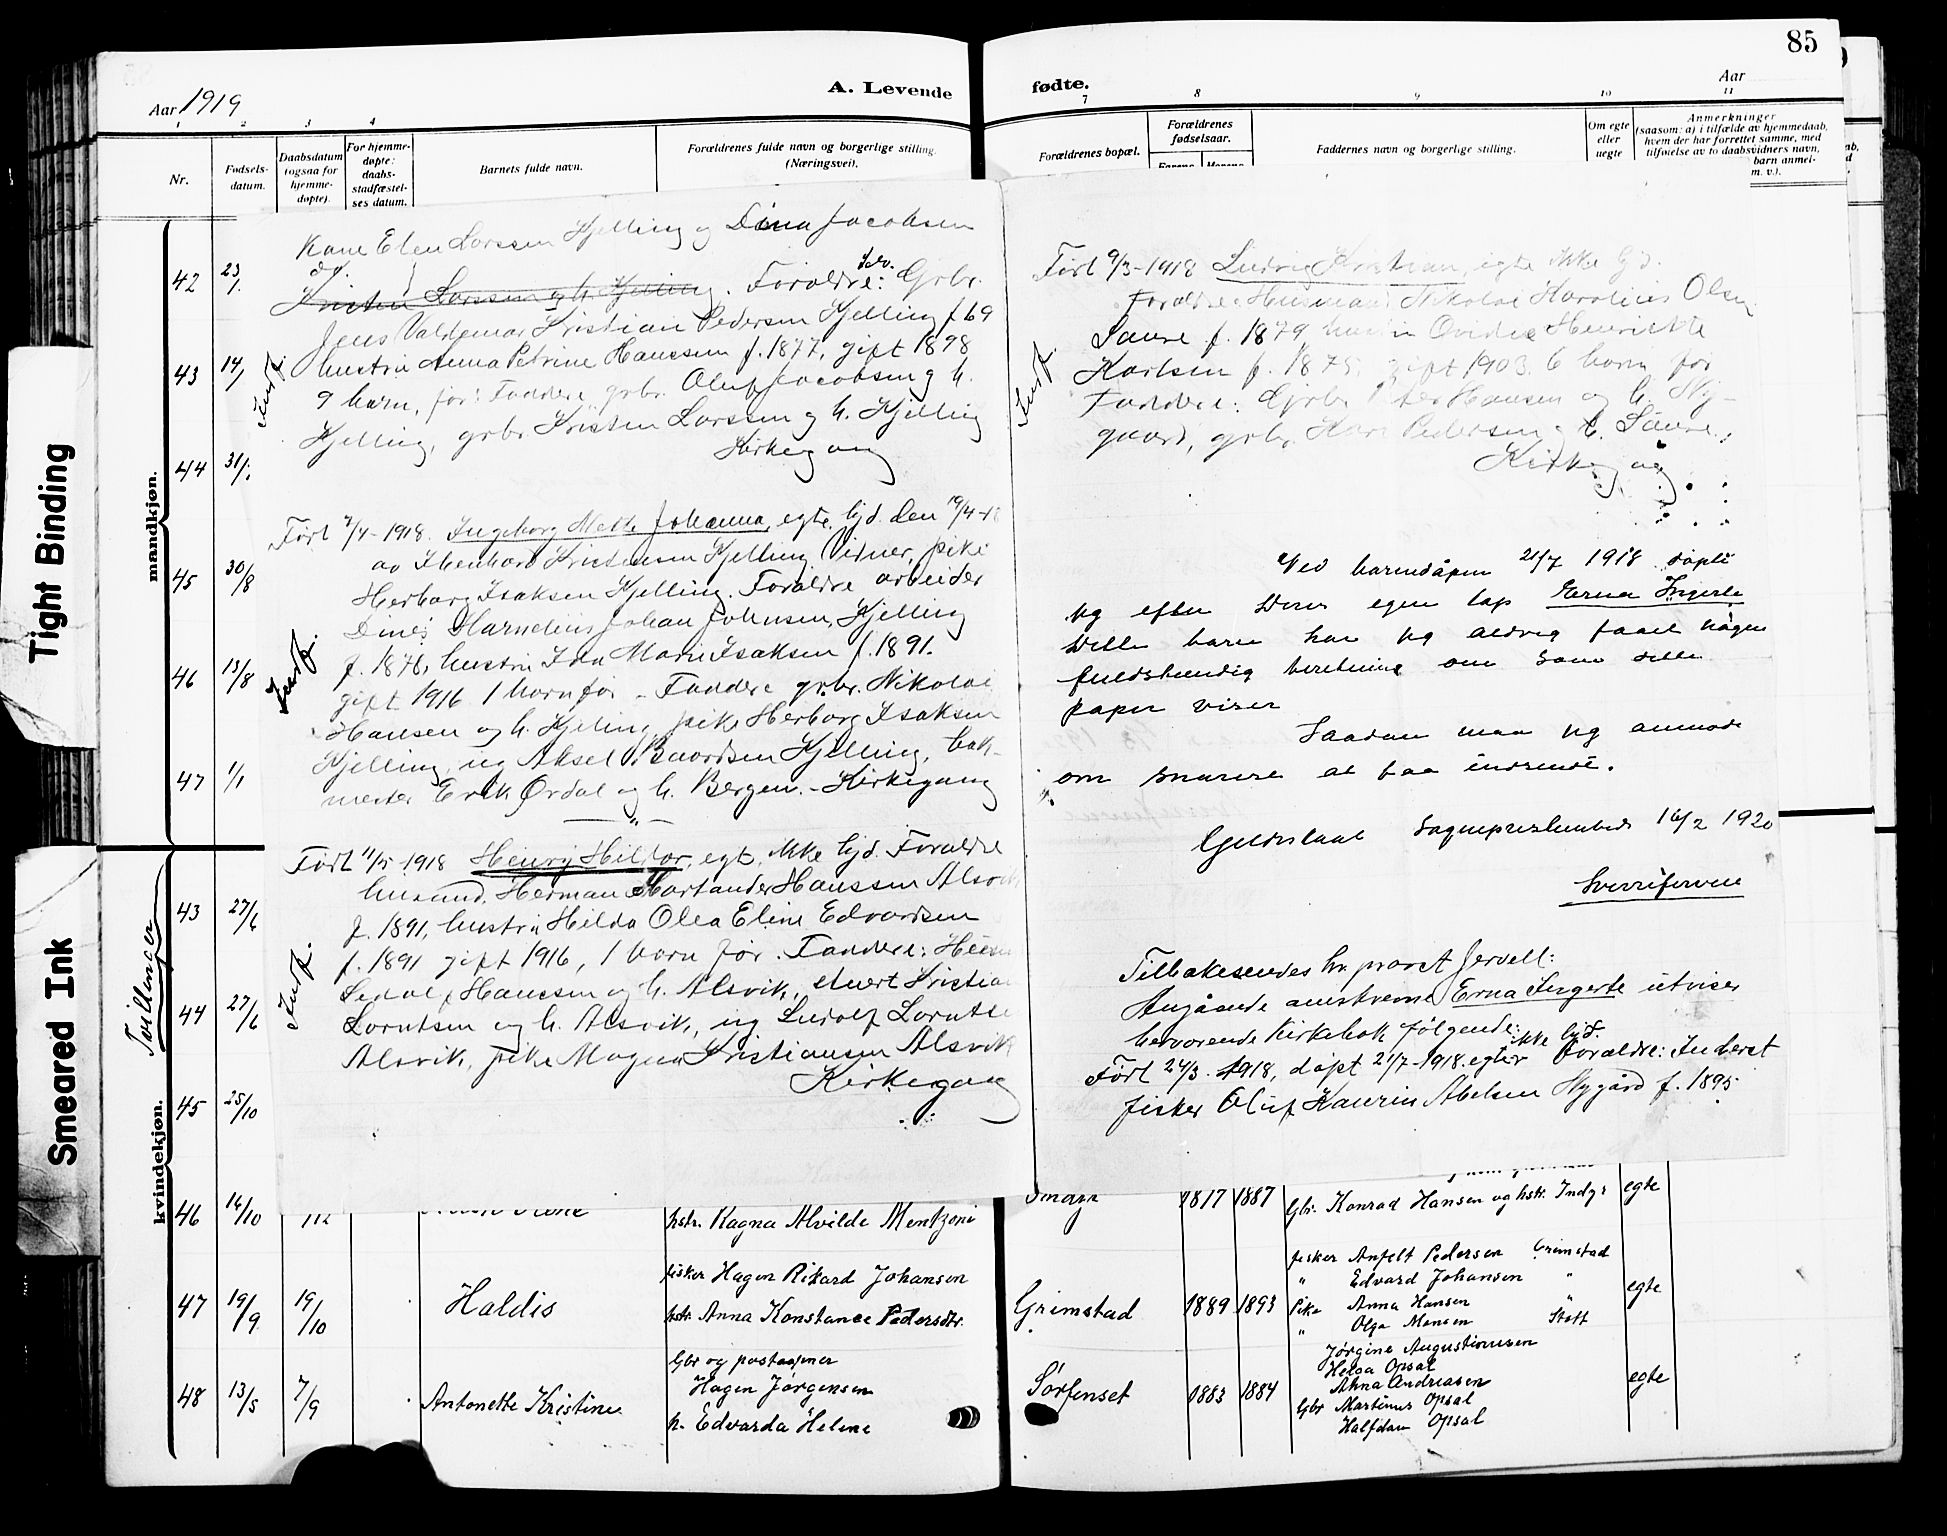 85
A. Levende fødte.
Aar 1919
Aar
1 2 3 4 7 8 9 10 11
Nr.
Fødsels-
datum.
Daabsdatum
(ogsaa for
hjemme-
døpte).
For hjemme-
døpte:
daabs-
stadfæstel-
ses datum.
Barnets fulde navn.
Forældrenes fulde navn og borgerlige stilling.
(Næringsvei).
Forældrenes bopæl.
Forældrenes
fødselsaar.
Faddernes navn og borgerlige stilling.
Om egte
eller
uegte
Anmerkninger
(saasom: a) i tilfælde av hjemmedaab,
hvem der har forrettet samme, med
tilføielse av to daabsvidners navn,
barn anmel-
m. v.).
Tight Binding
Smeared Ink
mandkjøn.
kvindekjøn.
Tvillinger
42 23/
43 14/
44 31/
45 30/8
46 13/8
47 1/1
43 27/6
44 27/6
45 25/10
Kone Elen Larssen Kjelling og Dina Jacobsen
Kristen Larssen og h. Kjelling. Forældre: Selv. Grbr.
Jens Valdemar Kristian Pedersen Kjelling f 69
hustru Anna Petrine Hanssen f. 1877, gift 1898
9 barn, før: Faddere grbr. Oluf Jacobsen og h.
Kjelling, grbr. Kristen Larssen og h. Kjelling
Kirkegang
Født 7/4-1918. Ingeborg Mette Johanna, egte, hjd. den 19/4-18
av Kristensen Kjelling. Vidner, pike
Herborg Isaksen Kjelling. Forældre arbeider
Dines Johan Johnsen, Kjelling
f. 1876, hustru Ida Marie Isaksen f. 1891.
gift 1916 1 barn før - Faddere grbr. Nikolai
Hansen og h. Kjelling, pike Herborg Isaksen
Kjelling, ug Aksel Baardsen Kjelling, bak-
mester Erik Ørdal og h. Bergen. - Kirkegang
Født 11/5-1918 Henry Hildor, egt, ikke hjd. Forældre
husmand, Herman Hartander Hanssen Alsvik
f. 1891, hustru Hilda Olea Eline Edvardsen
f. 1891 gift 1916, 1 barn før. Faddere:
Hanssen og h. Alsvik, Kristia
Lorntsen og h. Alsvik, ug Ludolf Lornts
Alsvik, pike Magna Kristiansen Alsvik
Kirkegang
Født 9/3-1918 Ludvig Kristian, egte ikke hjd.
Forældre: Husmand Nikolai Olsen
Saure f. 1879 hustru Henriette
Karlsen f. 1875, gift 1903. 6 barn før
Faddere: Grbr. Peter Hansen og h. Ny-
gaard, grbr. Hans Pedersen og h. Saure,
Kirkegang
Ved barnedåpen 21/7 1918 døpte
jeg efter Deres egen Erna Ingerte
Dette barn har jeg aldrig faaet nogen
fuldstændig beretning om som dette
papir viser
Saadan maa jeg anmode
om snarest at faa indsendt.
Gildeskaal Sogneprestembed 16/2 1920
Tilbakesendes hr. provst Jervell:
Angående omskrevne Erna Ingerte utviser
herværende kirkebok følgende:
Født 24/3. 1918, døpt 21/7-1918. egte, ikke hjd. Forældre: Inderst
fisker Oluf Kaurin Abelsen Nygård f. 1895
46 16/10
hstr. Ragna Alvilde Mentzoni
1817 1887
Gbr. Konrad Hansen og hstr. Indyr
egte
47 19/9 19/10 Haldis
fisker Hagen Rikard Johansen
hstr. Anna Konstance Pedersdtr.
Grimstad 1889 1893
fisker Anfelt Pedersen Grimstad
" Edvard Johansen "
Pike Anna Hansen "
" Olga Monsen Stott
egte
48 13/5 7/9 Antonette Kristine
Gbr og postaapner
Hagen Jørgensen
h. Edvarda Helene
Sørfenset 1883 1884
Jørgine Augustinusen
Helga Opsal
Anna Andreasen
Gbr Martinus Opsal
Halfdan Opsal
egte